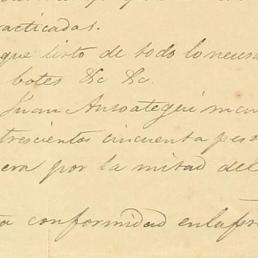 racticadas.
que listo de todo lo neces
botes &c &c.
Juan Ansoategui man
trescientos cincuenta pes
era por la mitad del
a conformidad en la pre